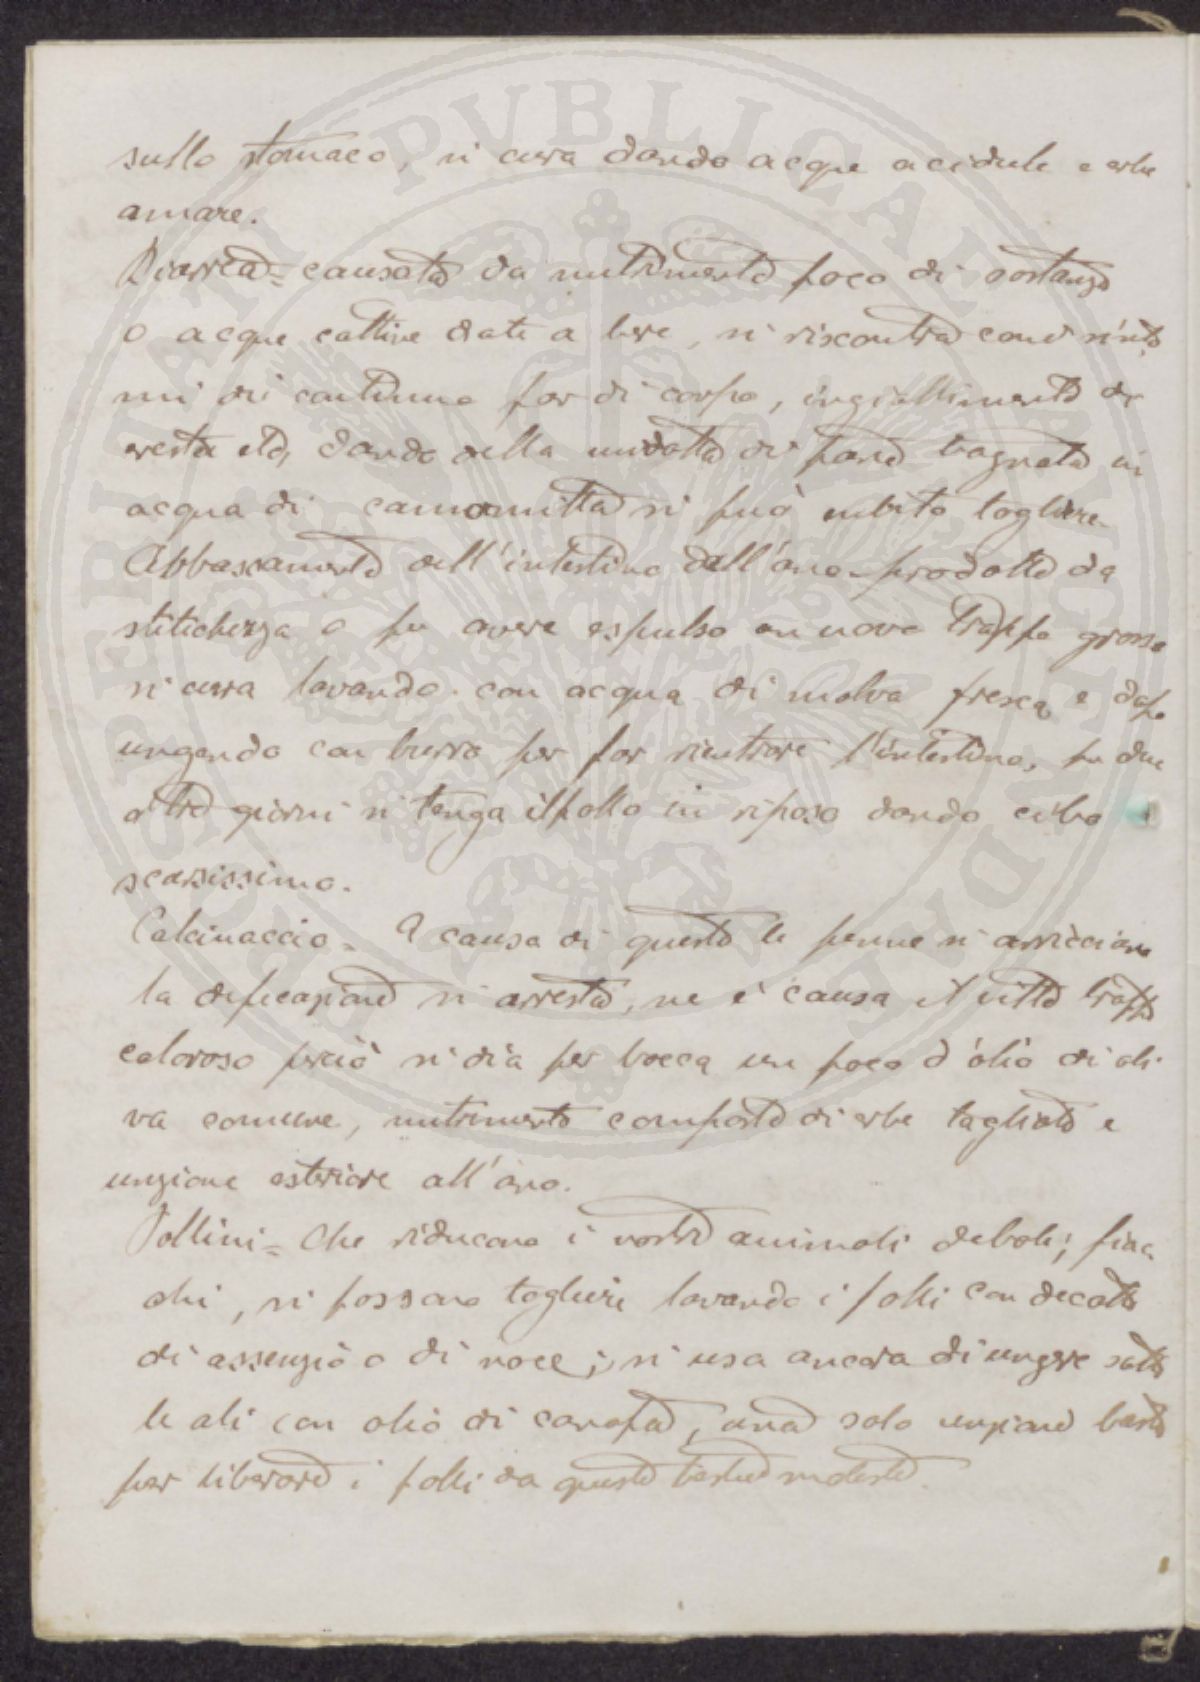 sullo stomaco, si cura dando acque acidule e erbe
amare.
Diarrea = causata da nutrimento poco di sostanza
o acque cattive date a bere, si riscontra con i sinto
mi di continuo far di corpo, ingiallimento di
cresta etc, dando della midolla di pane bagnata in
acqua di camomilla si può subito togliere
Abbassamento dell'intestino dall'ano = prodotto da
stitichezza o per avere espulso un uovo troppo grosso
si cura lavando con acqua di malva fresca e dopo
ungendo con burro per far rientrare l'intestino, per due
o tre giorni si tenga il pollo in riposo dando cibo
scarsissimo.
Calcinaccio = A causa di questo le penne si arricciano
la defecazione si arresta, ne è causa il vitto troppo
caloroso perciò si dia per bocca un poco d'olio di oli
va comune, nutrimento composto di erbe tagliate e
unzione esteriore all'ano.
Pollini = Che riducono i vostri animali deboli, fiac
chi, si possono togliere lavando i polli con decotto
di assenzio o di noce; si usa ancora di ungere sotto
le ali con olio di canapa, una sola unzione basta
per liberare i polli da queste bestie moleste.
PUBLICA